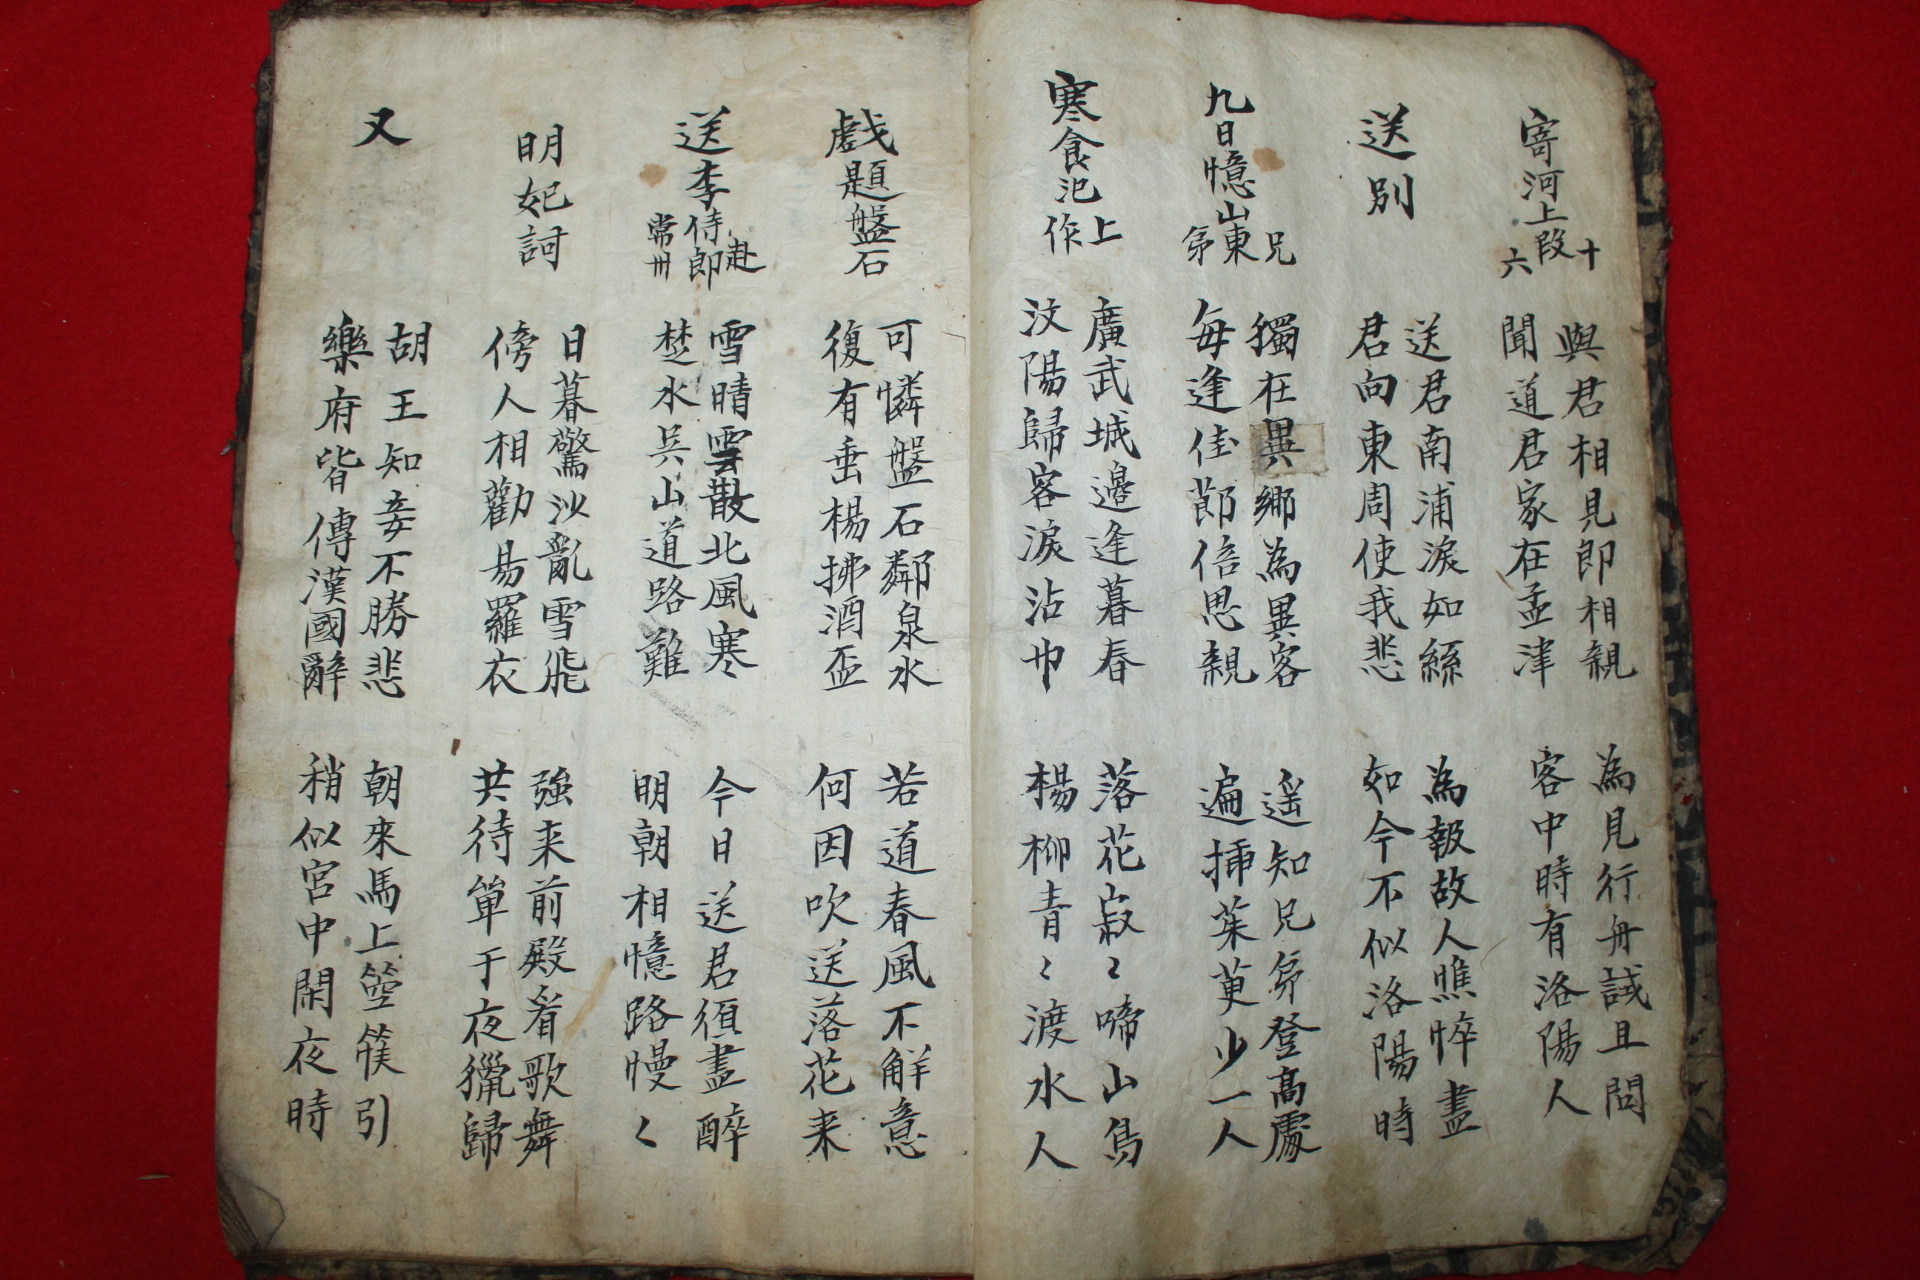 寄河上段十六
與君相見即相親
聞道君家在孟津
為見行舟試且問
客中時有洛陽人
送別
送君南浦淚如絲
君向東周使我悲
為報故人憔悴盡
如今不似洛陽時
九日憶山東兄弟
獨在異鄉為異客
每逢佳節倍思親
遥知兄弟登髙處
遍挿茱萸少一人
寒食汜上作
廣武城邊逢暮春
汶陽歸客淚沾巾
落花寂〻啼山鳥
楊柳青〻渡水人
戲題盤石
可憐盤石鄰泉水
復有垂楊拂酒盃
若道春風不解意
何因吹送落花来
送李侍郎赴常州
雪晴雲散北風寒
楚水吳山道路難
今日送君須盡醉
明朝相憶路慢〻
明妃詞
日暮驚沙亂雪飛
傍人相勸易羅衣
強来前殿看歌舞
共待單于夜獵歸
又
胡王知妾不勝悲
樂府皆傳漢國辭
朝來馬上箜篌引
稍似宮中閑夜時